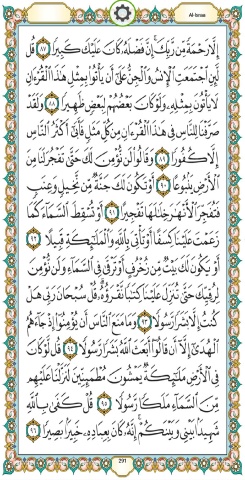 Al-Israa
إِلَّا رَحْمَةً مِّن رَّبِّكَ إِنَّ فَضْلَهُ كَانَ عَلَيْكَ كَبِيرًا ٨٧ قُل
لَّئِنِ اجْتَمَعَتِ الْإِنسُ وَالْجِنُّ عَلَىٰ أَن يَأْتُوا بِمِثْلِ هَٰذَا الْقُرْءَانِ
لَا يَأْتُونَ بِمِثْلِهِ وَلَوْ كَانَ بَعْضُهُمْ لِبَعْضٍ ظَهِيرًا ٨٨ وَلَقَدْ
صَرَّفْنَا لِلنَّاسِ فِي هَٰذَا الْقُرْءَانِ مِن كُلِّ مَثَلٍ فَأَبَىٰ أَكْثَرُ النَّاسِ
إِلَّا كُفُورًا ٨٩ وَقَالُوا لَن نُّؤْمِنَ لَكَ حَتَّىٰ تَفْجُرَ لَنَا مِنَ
الْأَرْضِ يَنبُوعًا ٩٠ أَوْ تَكُونَ لَكَ جَنَّةٌ مِّن نَّخِيلٍ وَعِنَبٍ
فَتُفَجِّرَ الْأَنْهَٰرَ خِلَٰلَهَا تَفْجِيرًا ٩١ أَوْ تُسْقِطَ السَّمَاءَ كَمَا
زَعَمْتَ عَلَيْنَا كِسَفًا أَوْ تَأْتِيَ بِاللَّهِ وَالْمَلَٰئِكَةِ قَبِيلًا ٩٢
أَوْ يَكُونَ لَكَ بَيْتٌ مِّن زُخْرُفٍ أَوْ تَرْقَىٰ فِي السَّمَاءِ وَلَن نُّؤْمِنَ
لِرُقِيِّكَ حَتَّىٰ تُنَزِّلَ عَلَيْنَا كِتَٰبًا نَّقْرَؤُهُ قُلْ سُبْحَانَ رَبِّي هَلْ
كُنتُ إِلَّا بَشَرًا رَّسُولًا ٩٣ وَمَا مَنَعَ النَّاسَ أَن يُؤْمِنُوا إِذْ جَاءَهُمُ
الْهُدَىٰ إِلَّا أَن قَالُوا أَبَعَثَ اللَّهُ بَشَرًا رَّسُولًا ٩٤ قُل لَّوْ كَانَ
فِي الْأَرْضِ مَلَٰئِكَةٌ يَمْشُونَ مُطْمَئِنِّينَ لَنَزَّلْنَا عَلَيْهِم
مِّنَ السَّمَاءِ مَلَكًا رَّسُولًا ٩٥ قُلْ كَفَىٰ بِاللَّهِ
شَهِيدًا بَيْنِي وَبَيْنَكُمْ إِنَّهُ كَانَ بِعِبَادِهِ خَبِيرًا بَصِيرًا ٩٦
291